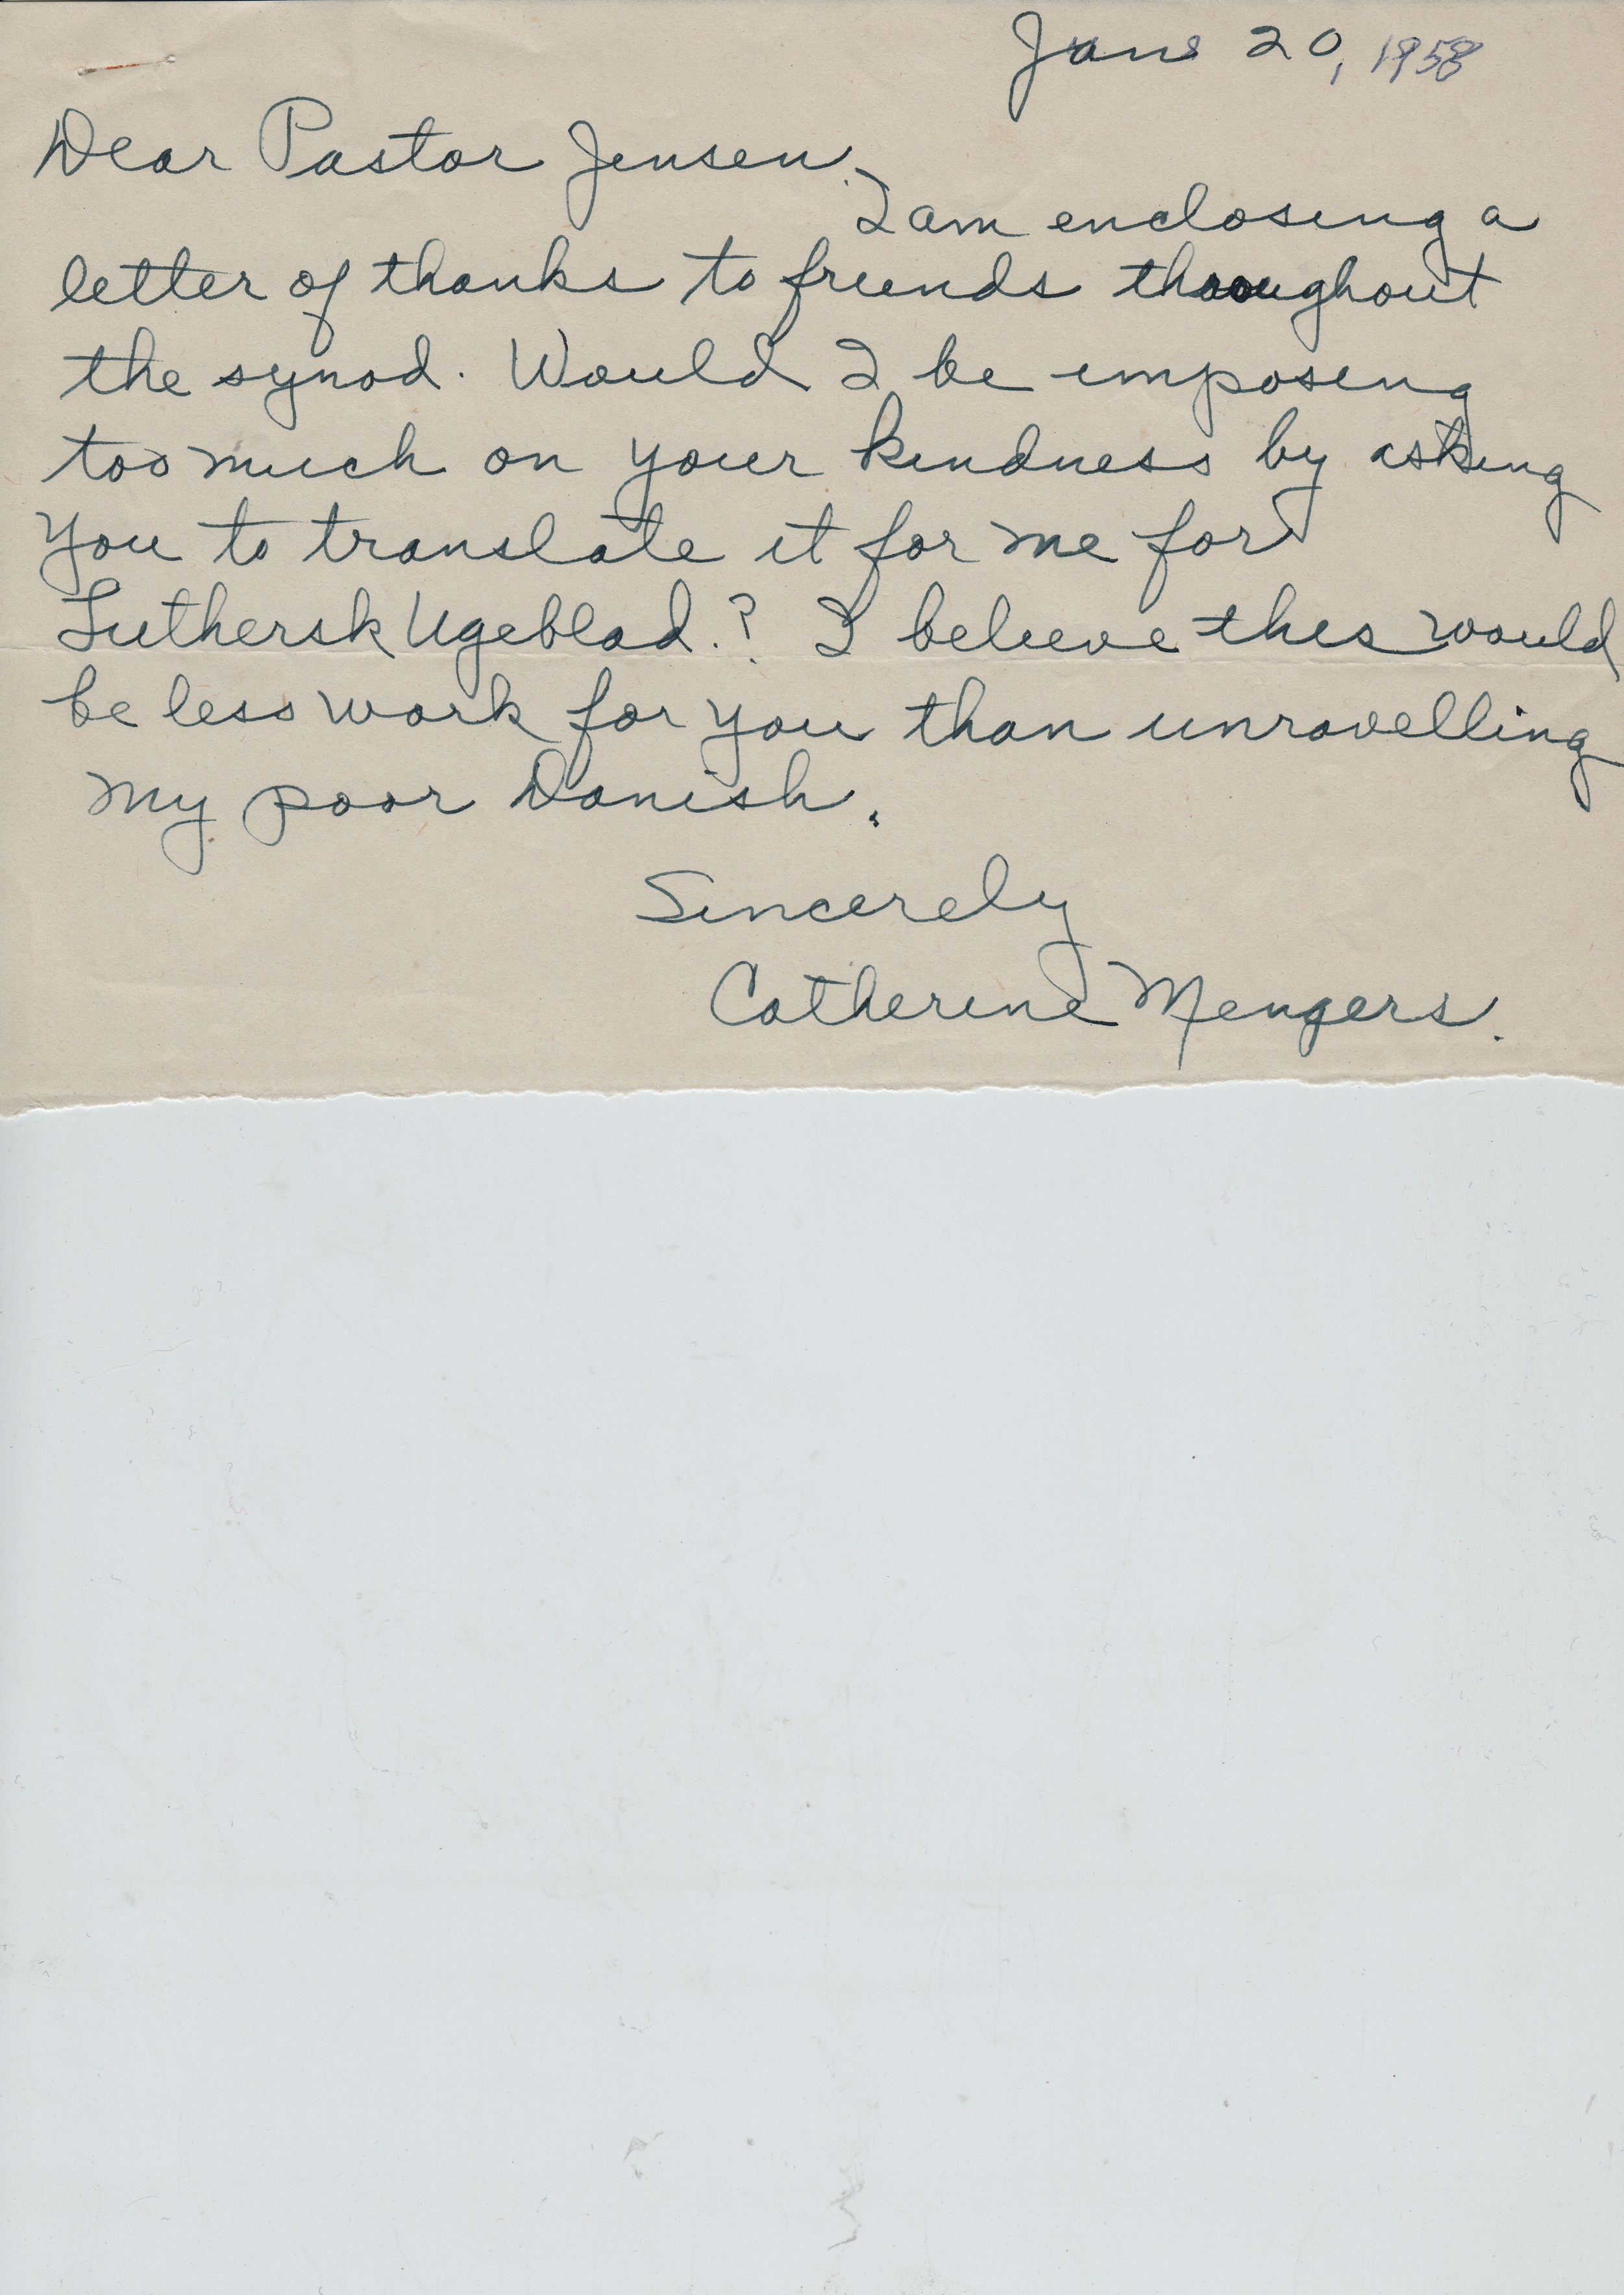 Jan. 20, 1958
Dear Pastor Jensen.
I am enclosing a
letter of thanks to friends throughout
the synod. Would I be imposing
too much on your kindness by asking
you to translate it for me for
Luthersk Ugeblad.? I believe this would
be less work for you than unravelling
my poor Danish.
Sincerely
Catherine Mengers.